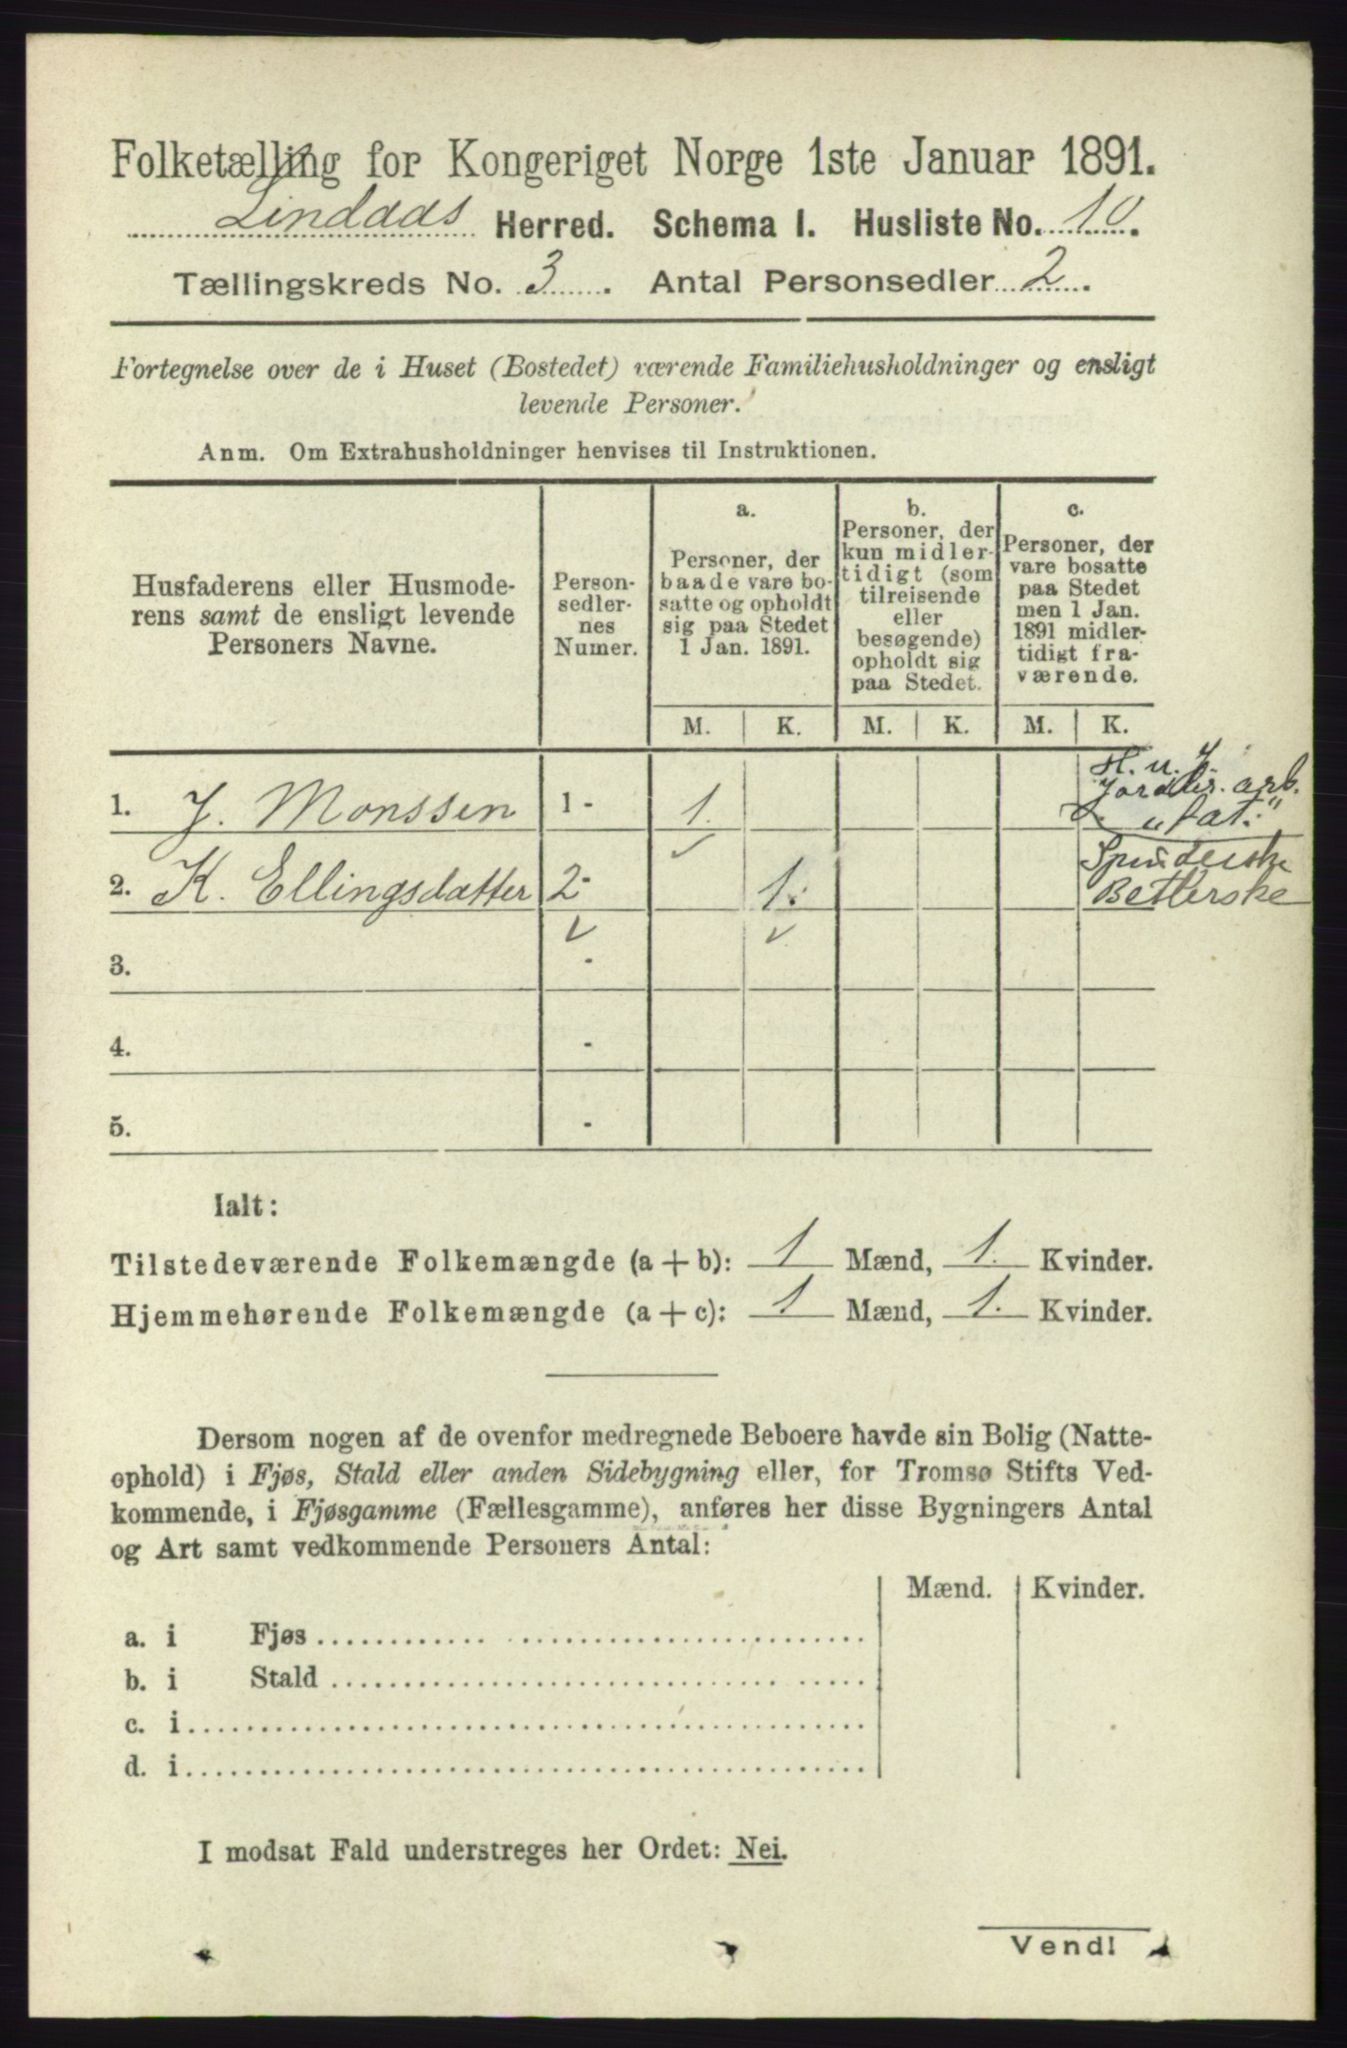 Folketælling for Kongeriget Norge 1ste Januar 1891.
Lindaas Herred. Schema I. Husliste No. 10.
Tællingskreds No. 3. Antal Personsedler 2.
Fortegnelse over de i Huset (Bostedet) værende Familiehusholdninger og ensligt
levende Personer.
Anm. Om Extrahusholdninger henvises til Instruktionen.
Husfaderens eller Husmode-
rens samt de ensligt levende
Personers Navne.
Person-
sedler-
nes
Numer.
a.
Personer, der
baade vare bo-
satte og opholdt
sig paa Stedet
1 Jan. 1891.
b.
Personer, der
kun midler-
tidigt (som
tilreisende
eller
besøgende)
opholdt sig
paa Stedet.
c.
Personer, der
vare bosatte
paa Stedet
men 1 Jan.
1891 midler-
tidigt fra-
værende.
M. K. M. K. M. K.
H. u. J.
1. J. Monssen 1- 1. arb.
Spinderske
2. K. Ellingsdatter 2- 1. Betlerske
3. -
4. -
5. -
Ialt:
Tilstedeværende Folkemængde (a + b): 1 Mænd, 1. Kvinder.
Hjemmehørende Folkemængde (a + c): 1 Mænd, 1. Kvinder.
Dersom nogen af de ovenfor medregnede Beboere havde sin Bolig (Natte-
ophold) i Fjøs, Stald eller anden Sidebygning eller, for Tromsø Stifts Ved-
kommende, i Fjøsgamme (Fællesgamme), anføres her disse Bygningers Antal
og Art samt vedkommende Personers Antal:
Mænd. Kvinder.
a. i Fjøs
b. i Stald
c. i
d. i
I modsat Fald understreges her Ordet: Nei.
Vend!